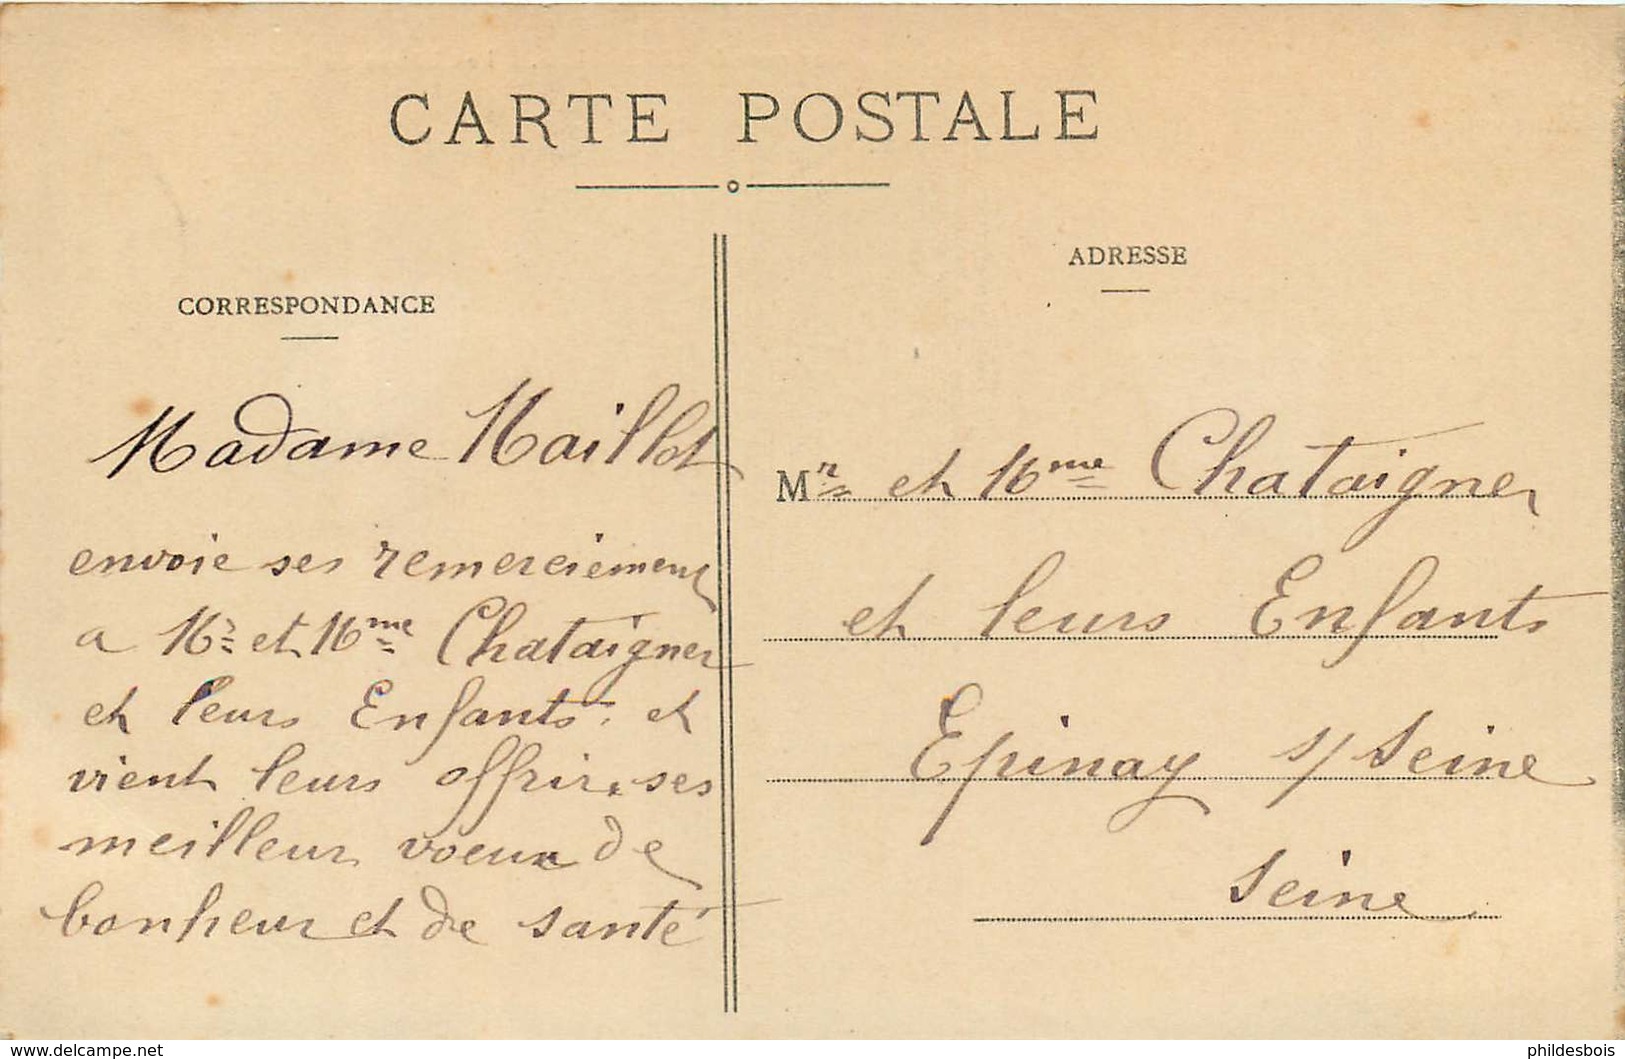 CARTE POSTALE
CORRESPONDANCE
Madame Maillot
envoie ses remerciements
a Mr et Mme Chataigner
et leurs Enfants. et
vient leurs offrir ses
meilleur voeux de
bonheur et de santé
ADRESSE
Mr et Mme Chataigner
et leurs Enfants
Epinay s/ Seine
Seine
www.delcampe.net
phildesbois